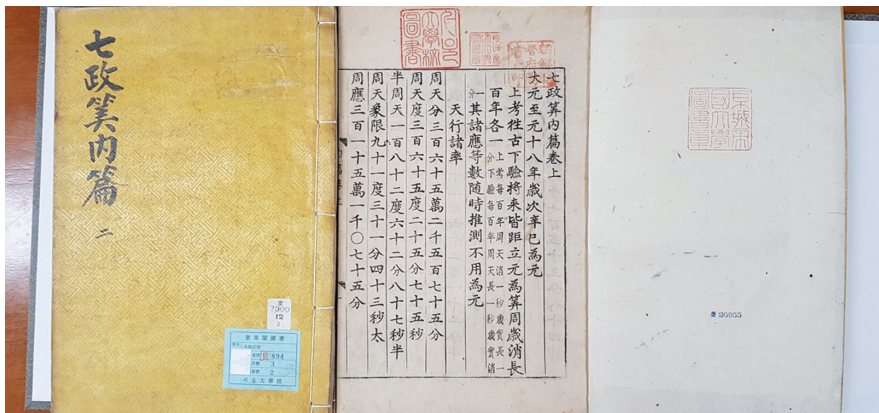 七政筭内篇
二
奎
7300
12
2
奎章閣圖書
貴894
3
2
서울大學校
七政筭内篇卷上
大元至元十八年歲次辛巳為元
上考徃古下驗將来皆距立元為筭周歲消長
百年各一上考每百年周天消一秒歲實長一
分下驗每百年周天長一秒歲實消
一分其諸應等數随時推測不用為元
天行諸率
周天分三百六十五萬二千五百七十五分
周天度三百六十五度二十五分七十五秒
半周天一百八十二度六十二分八十七秒半
周天象限九十一度三十一分四十三秒太
周應三百一十五萬一千〇七十五分
京城帝國大學圖書章
奎 26055